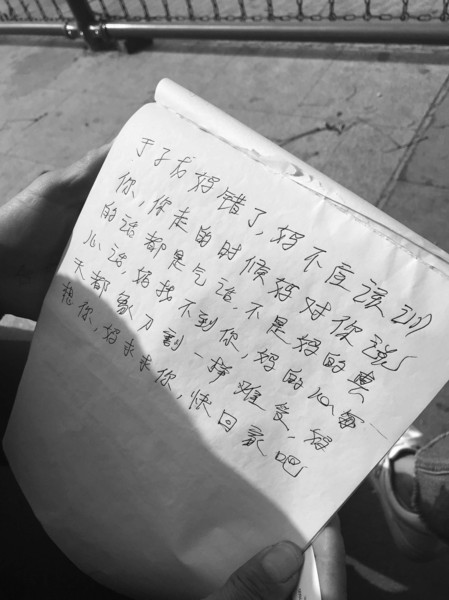 于子龙妈错了,妈不应该训
你,你走的时候妈对你说
的话都是气话,不是妈的真
心话,妈找不到你,妈的心每
天都象刀割一样难受,妈
想你,妈求求你,快回家吧